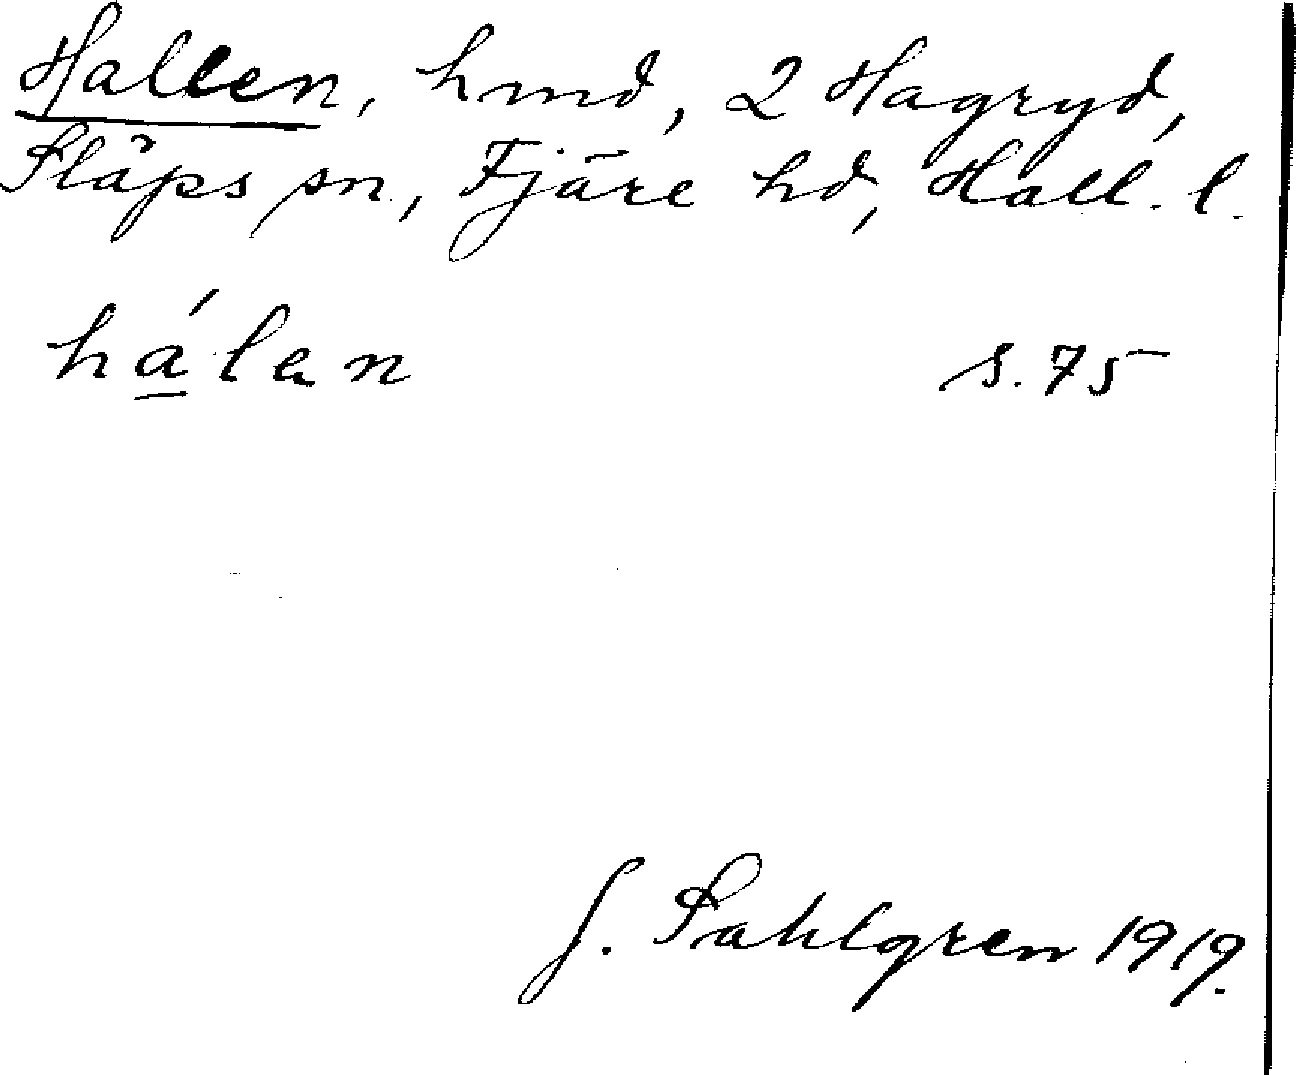 Hallen, hmd, 2 Hagryd,
Släps sn, Fjäre hd, Hall. l.
hálan s. 75
J. Sahlgren 1919.